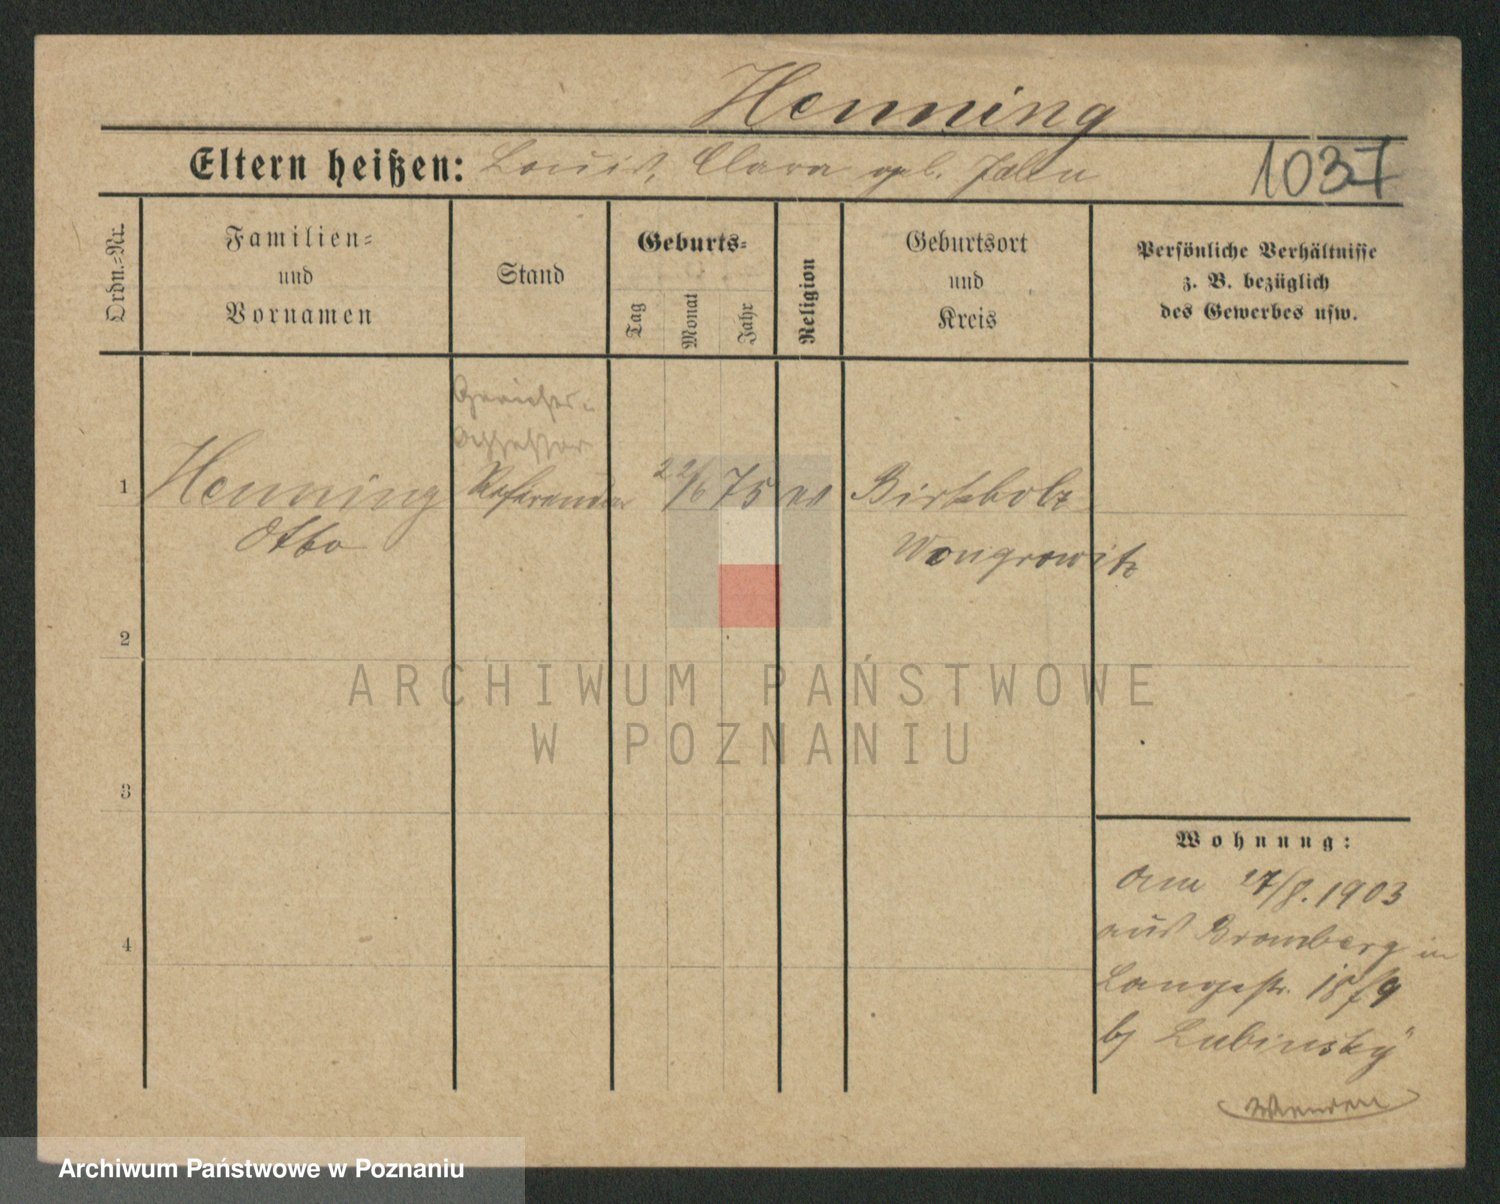 Henning
Eltern heißen: Louis, Clara geb.
1037
Ordn.-Nr.
Familien-
und
Vornamen
Stand
Geburts-
Tag
Monat
Jahr
Religion
Geburtsort
und
Kreis
Persönliche Verhältnisse
z. B. bezüglich
des Gewerbes usw.
Gerichts-
Assessor
1 Henning Referendar 22/6 75 ev Birkholz
Otto Wongrowitz
2
3
4
Wohnung:
Am 27/8. 1903
aus Bromberg in
Langestr. 18/9
bj Lubinsky
Wenden
ARCHIWUM PAŃSTWOWE
W POZNANIU
Archiwum Państwowe w Poznaniu